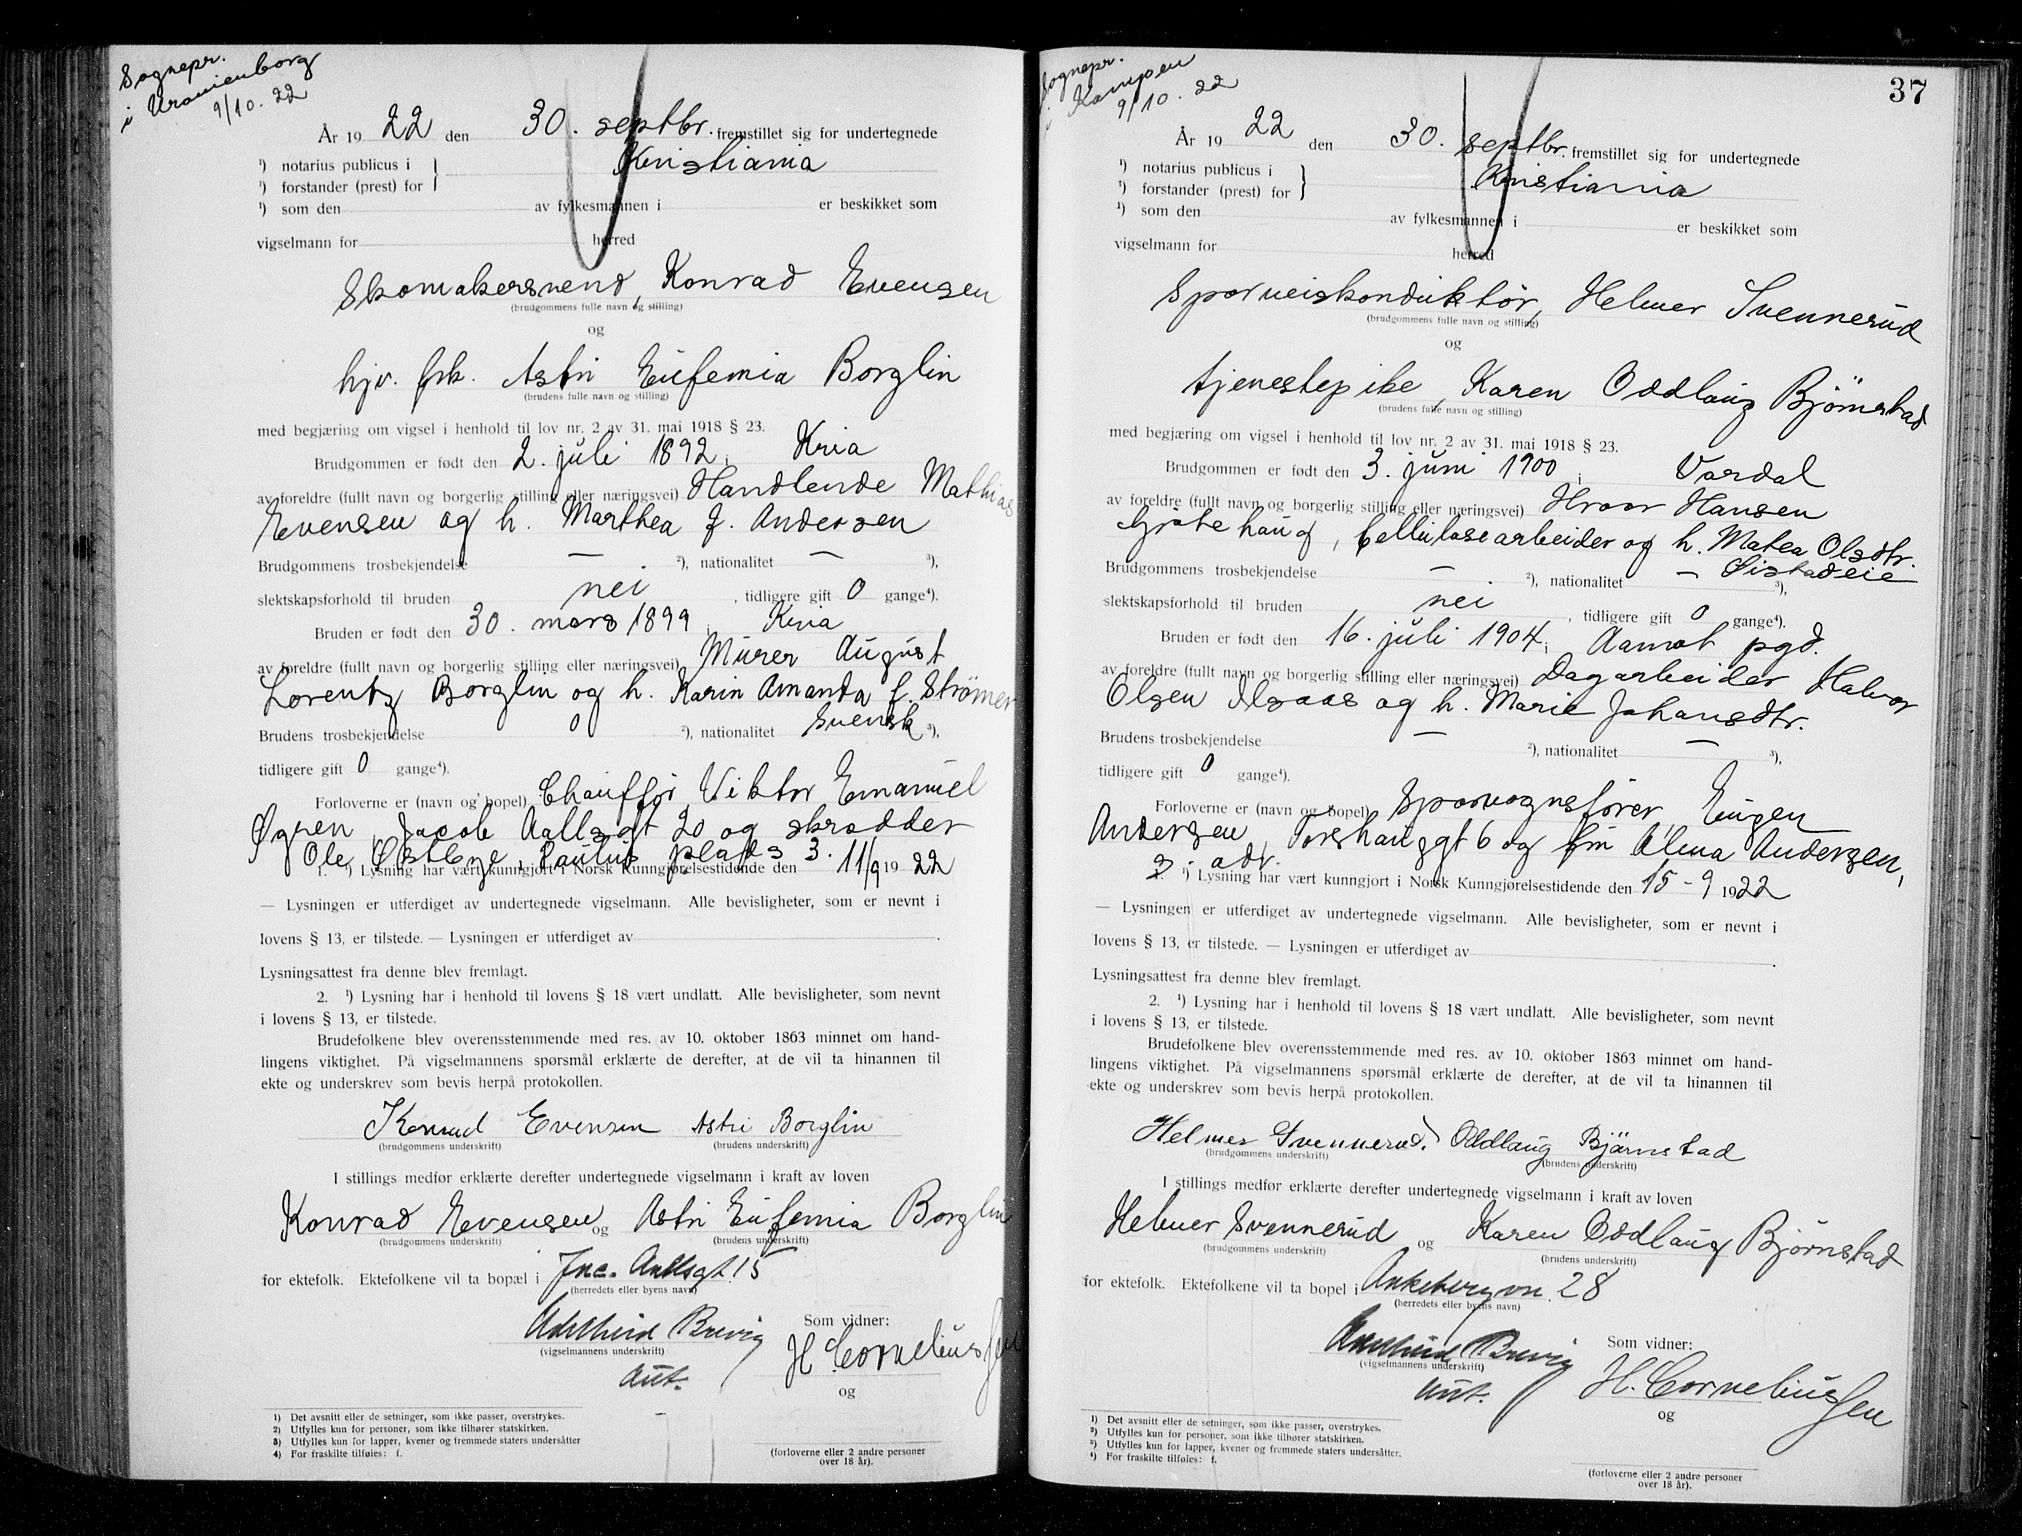 Sognepr.
i Uranienborg
9/10. 22
År 19 22 den 30. septbr. fremstillet sig for undertegnede
¹) notarius publicus i } Kristiania
¹) forstander (prest) for
¹) som den av fylkesmannen i er beskikket som
vigselmann for herred
Skomakersvend, Konrad Evensen
(brudgommens fulle navn og stilling)
og
hjv. frk. Astri Eufemia Borglin
(brudens fulle navn og stilling)
med begjæring om vigsel i henhold til lov nr. 2 av 31. mai 1918 § 23.
Brudgommen er født den 2. juli 1892, Kria
av foreldre (fullt navn og borgerlig stilling eller næringsvei) Handlende Mathias
Evensen og h. Marthea f. Andersen
Brudgommens trosbekjendelse — ²), nationalitet — ³),
slektskapsforhold til bruden nei , tidligere gift 0 gange⁴).
Bruden er født den 30. mars 1899, Kria
av foreldre (fullt navn og borgerlig stilling eller næringsvei) Murer August
Lorentz Borglin og h. Karin Amanda f. Strömer
Brudens trosbekjendelse 0 ²), nationalitet Svensk ³),
tidligere gift 0 gange⁴).
Forloverne er (navn og bopel) Chauffør Viktor Emanuel
Øgren, Jacob Aallsgt 20 og skrædder
Ole Østbye, Paulus plads 3.
1. ¹) Lysning har vært kunngjort i Norsk Kunngjørelsestidende den 11/9 19 22
— Lysningen er utferdiget av undertegnede vigselmann. Alle bevisligheter, som er nevnt i
lovens § 13, er tilstede. — Lysningen er utferdiget av .
Lysningsattest fra denne blev fremlagt.
2. ¹) Lysning har i henhold til lovens § 18 vært undlatt. Alle bevisligheter, som nevnt
i lovens § 13, er tilstede.
Brudefolkene blev overensstemmende med res. av 10. oktober 1863 minnet om hand-
lingens viktighet. På vigselmannens spørsmål erklærte de derefter, at de vil ta hinannen til
ekte og underskrev som bevis herpå protokollen.
Konrad Evensen Astri Borglin
(brudgommens underskrift) (brudens underskrift)
I stillings medfør erklærte derefter undertegnede vigselmann i kraft av loven
Konrad Evensen og Astri Eufemia Borglin
(brudgommens underskrift) (brudens underskrift)
for ektefolk. Ektefolkene vil ta bopæl i Jac. Aallsgt. 15
(herredets eller byens navn)
Adelheid Brevig
(vigselmannens underskrift)
Aut.
Som vidner:
H Corneliussen
og
(forloverne eller 2 andre personer
over 18 år).
1) Det avsnitt eller de setninger, som ikke passer, overstrykes.
2) Utfylles kun for personer, som ikke tilhører statskirken.
3) Utfylles kun for lapper, kvener og fremmede staters undersåtter
4) For fraskilte tilføies: f.
37
Sognepr.
i Kampen
9/10. 22
År 19 22 den 30. septbr. fremstillet sig for undertegnede
¹) notarius publicus i } Kristiania
¹) forstander (prest) for
¹) som den av fylkesmannen i er beskikket som
vigselmann for herred
Sporveiskonduktør, Helmer Svennerud
(brudgommens fulle navn og stilling)
og
tjenestepike, Karen Oddlaug Bjørnstad
(brudens fulle navn og stilling)
med begjæring om vigsel i henhold til lov nr. 2 av 31. mai 1918 § 23.
Brudgommen er født den 3. juni 1900, Vardal
av foreldre (fullt navn og borgerlig stilling eller næringsvei) Hroar Hansen
Grøtehaug, Cellulosearbeider og h. Matea Olsdtr.
Øistadeie
Brudgommens trosbekjendelse — ²), nationalitet — ³),
slektskapsforhold til bruden nei , tidligere gift 0 gange⁴).
Bruden er født den 16. juli 1904, Aamot pgd.
av foreldre (fullt navn og borgerlig stilling eller næringsvei) Dagarbeider Halvor
Olsen Alsaas og h. Marie Johansdtr.
Brudens trosbekjendelse — ²), nationalitet — ³),
tidligere gift 0 gange⁴).
Forloverne er (navn og bopel) Sporvognsfører, Eugen
Andersen Torshauggt 6 og fru Alma Andersen,
s. adr.
¹) Lysning har vært kunngjort i Norsk Kunngjørelsestidende den 15-9 1922
— Lysningen er utferdiget av undertegnede vigselmann. Alle bevisligheter, som er nevnt i
lovens § 13, er tilstede. — Lysningen er utferdiget av .
Lysningsattest fra denne blev fremlagt.
2. ¹) Lysning har i henhold til lovens § 18 vært undlatt. Alle bevisligheter, som nevnt
i lovens § 13, er tilstede.
Brudefolkene blev overensstemmende med res. av 10. oktober 1863 minnet om hand-
lingens viktighet. På vigselmannens spørsmål erklærte de derefter, at de vil ta hinannen til
ekte og underskrev som bevis herpå protokollen.
Helmer Svennerud. Oddlaug Bjørnstad
(brudgommens underskrift) (brudens underskrift)
I stillings medfør erklærte derefter undertegnede vigselmann i kraft av loven
Helmer Svennerud og Karen Oddlaug Bjørnstad
(brudgommens underskrift) (brudens underskrift)
for ektefolk. Ektefolkene vil ta bopel i Ankerbergvn. 28
(herredets eller byens navn)
Adelheid Brevig
(vigselmannens underskrift)
Aut.
Som vidner:
H. Corneliussen
og
(forloverne eller 2 andre personer
over 18 år).
¹) Det avsnitt eller de setninger, som ikke passer, overstrykes.
²) Utfylles kun for personer, som ikke tilhører statskirken.
³) Utfylles kun for lapper, kvener og fremmede staters undersåtter.
⁴) For fraskilte tilføies: f.